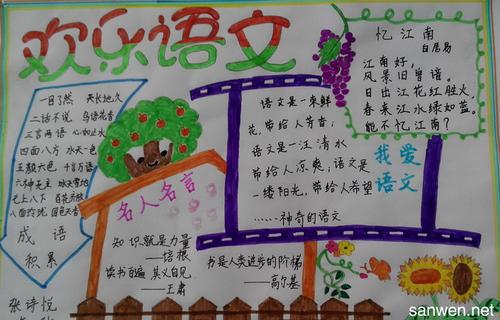 欢乐语文
一目了然 天长地久
二话不说 鸟语花香
三言两语 心如止水
四面八方 水天一色
五颜六色 千言万语
冰天雪地
七上八下 百花齐放
八面玲珑 国色天香
成语
积累
张诗悦
名人名言
知识就是力量
——培根
读书百遍 其义自见
——王肃
语文是一束鲜
花,带给人芳香;
语文是一汪清水
带给人凉爽;语文是
一缕阳光,带给人希望
……神奇的语文
书是人类进步的阶梯
——高尔基
忆江南
白居易
江南好,
风景旧曾谙。
日出江花红胜火,
春来江水绿如蓝。
能不忆江南?
我爱
语文
sanwen.net